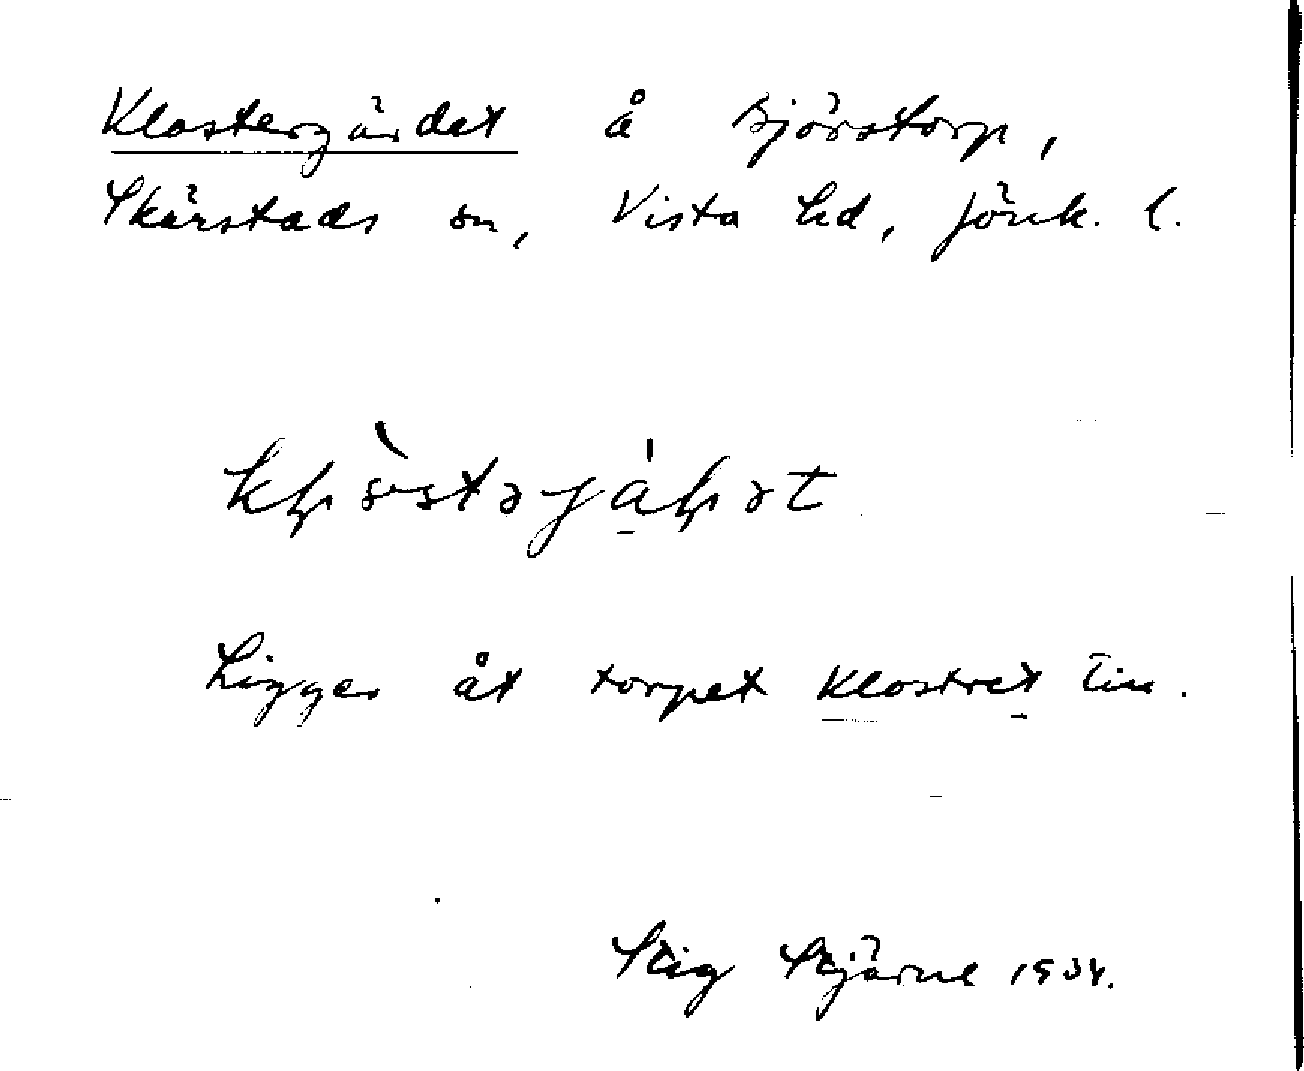 Klostergärdet å Björstorp,
Skärstads sn, Vista hd, Jönk. l.
Ligger åt torpet Klostret till.
Stig Stjärne 1934.